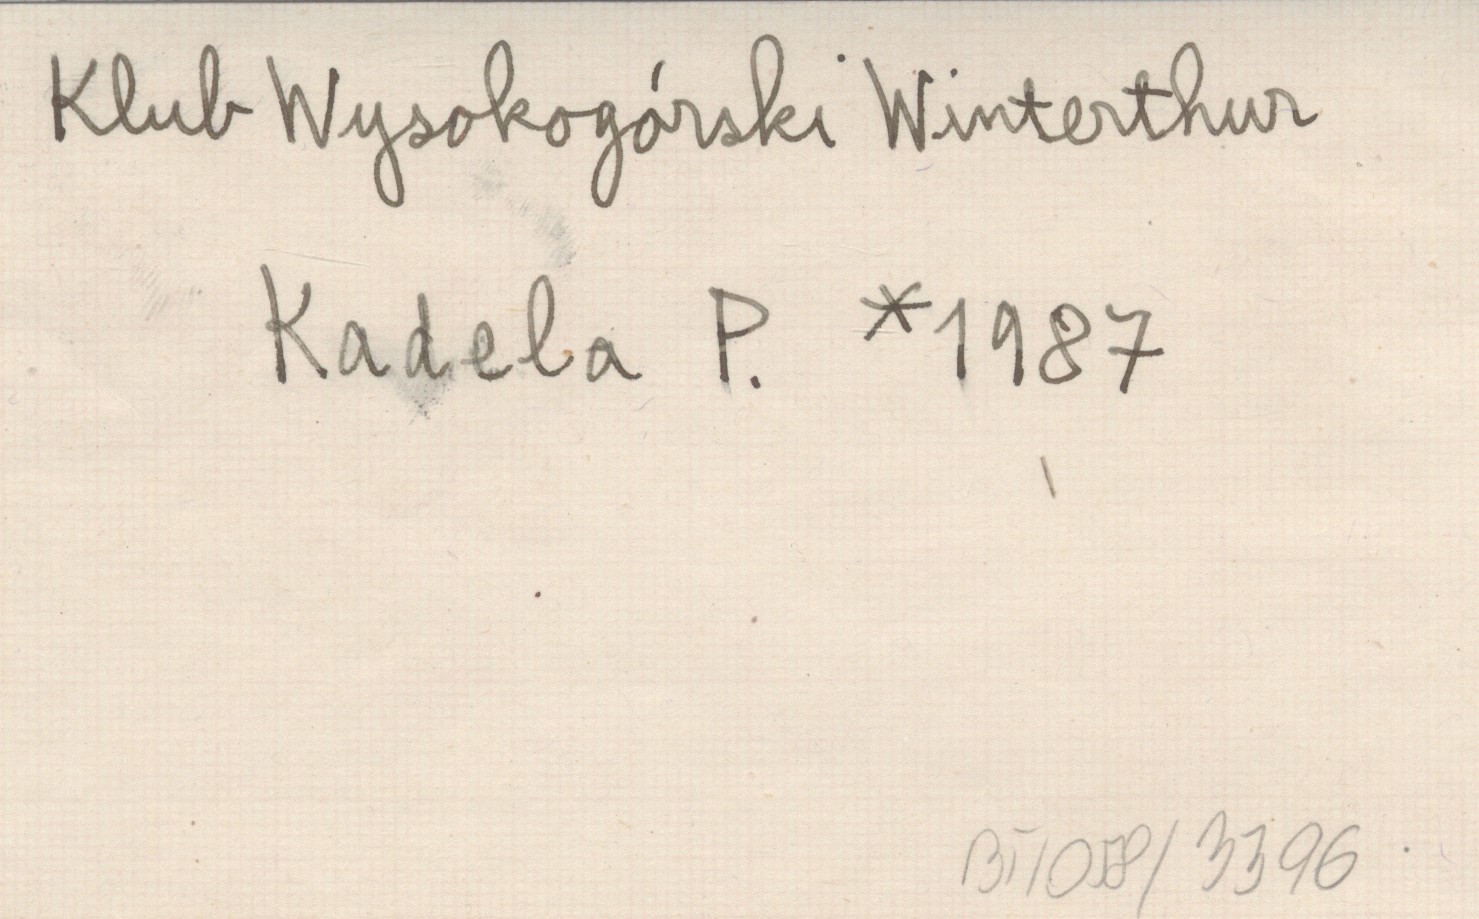 Klub Wysokogórski Winterthur
Kadela P. *1987
3396